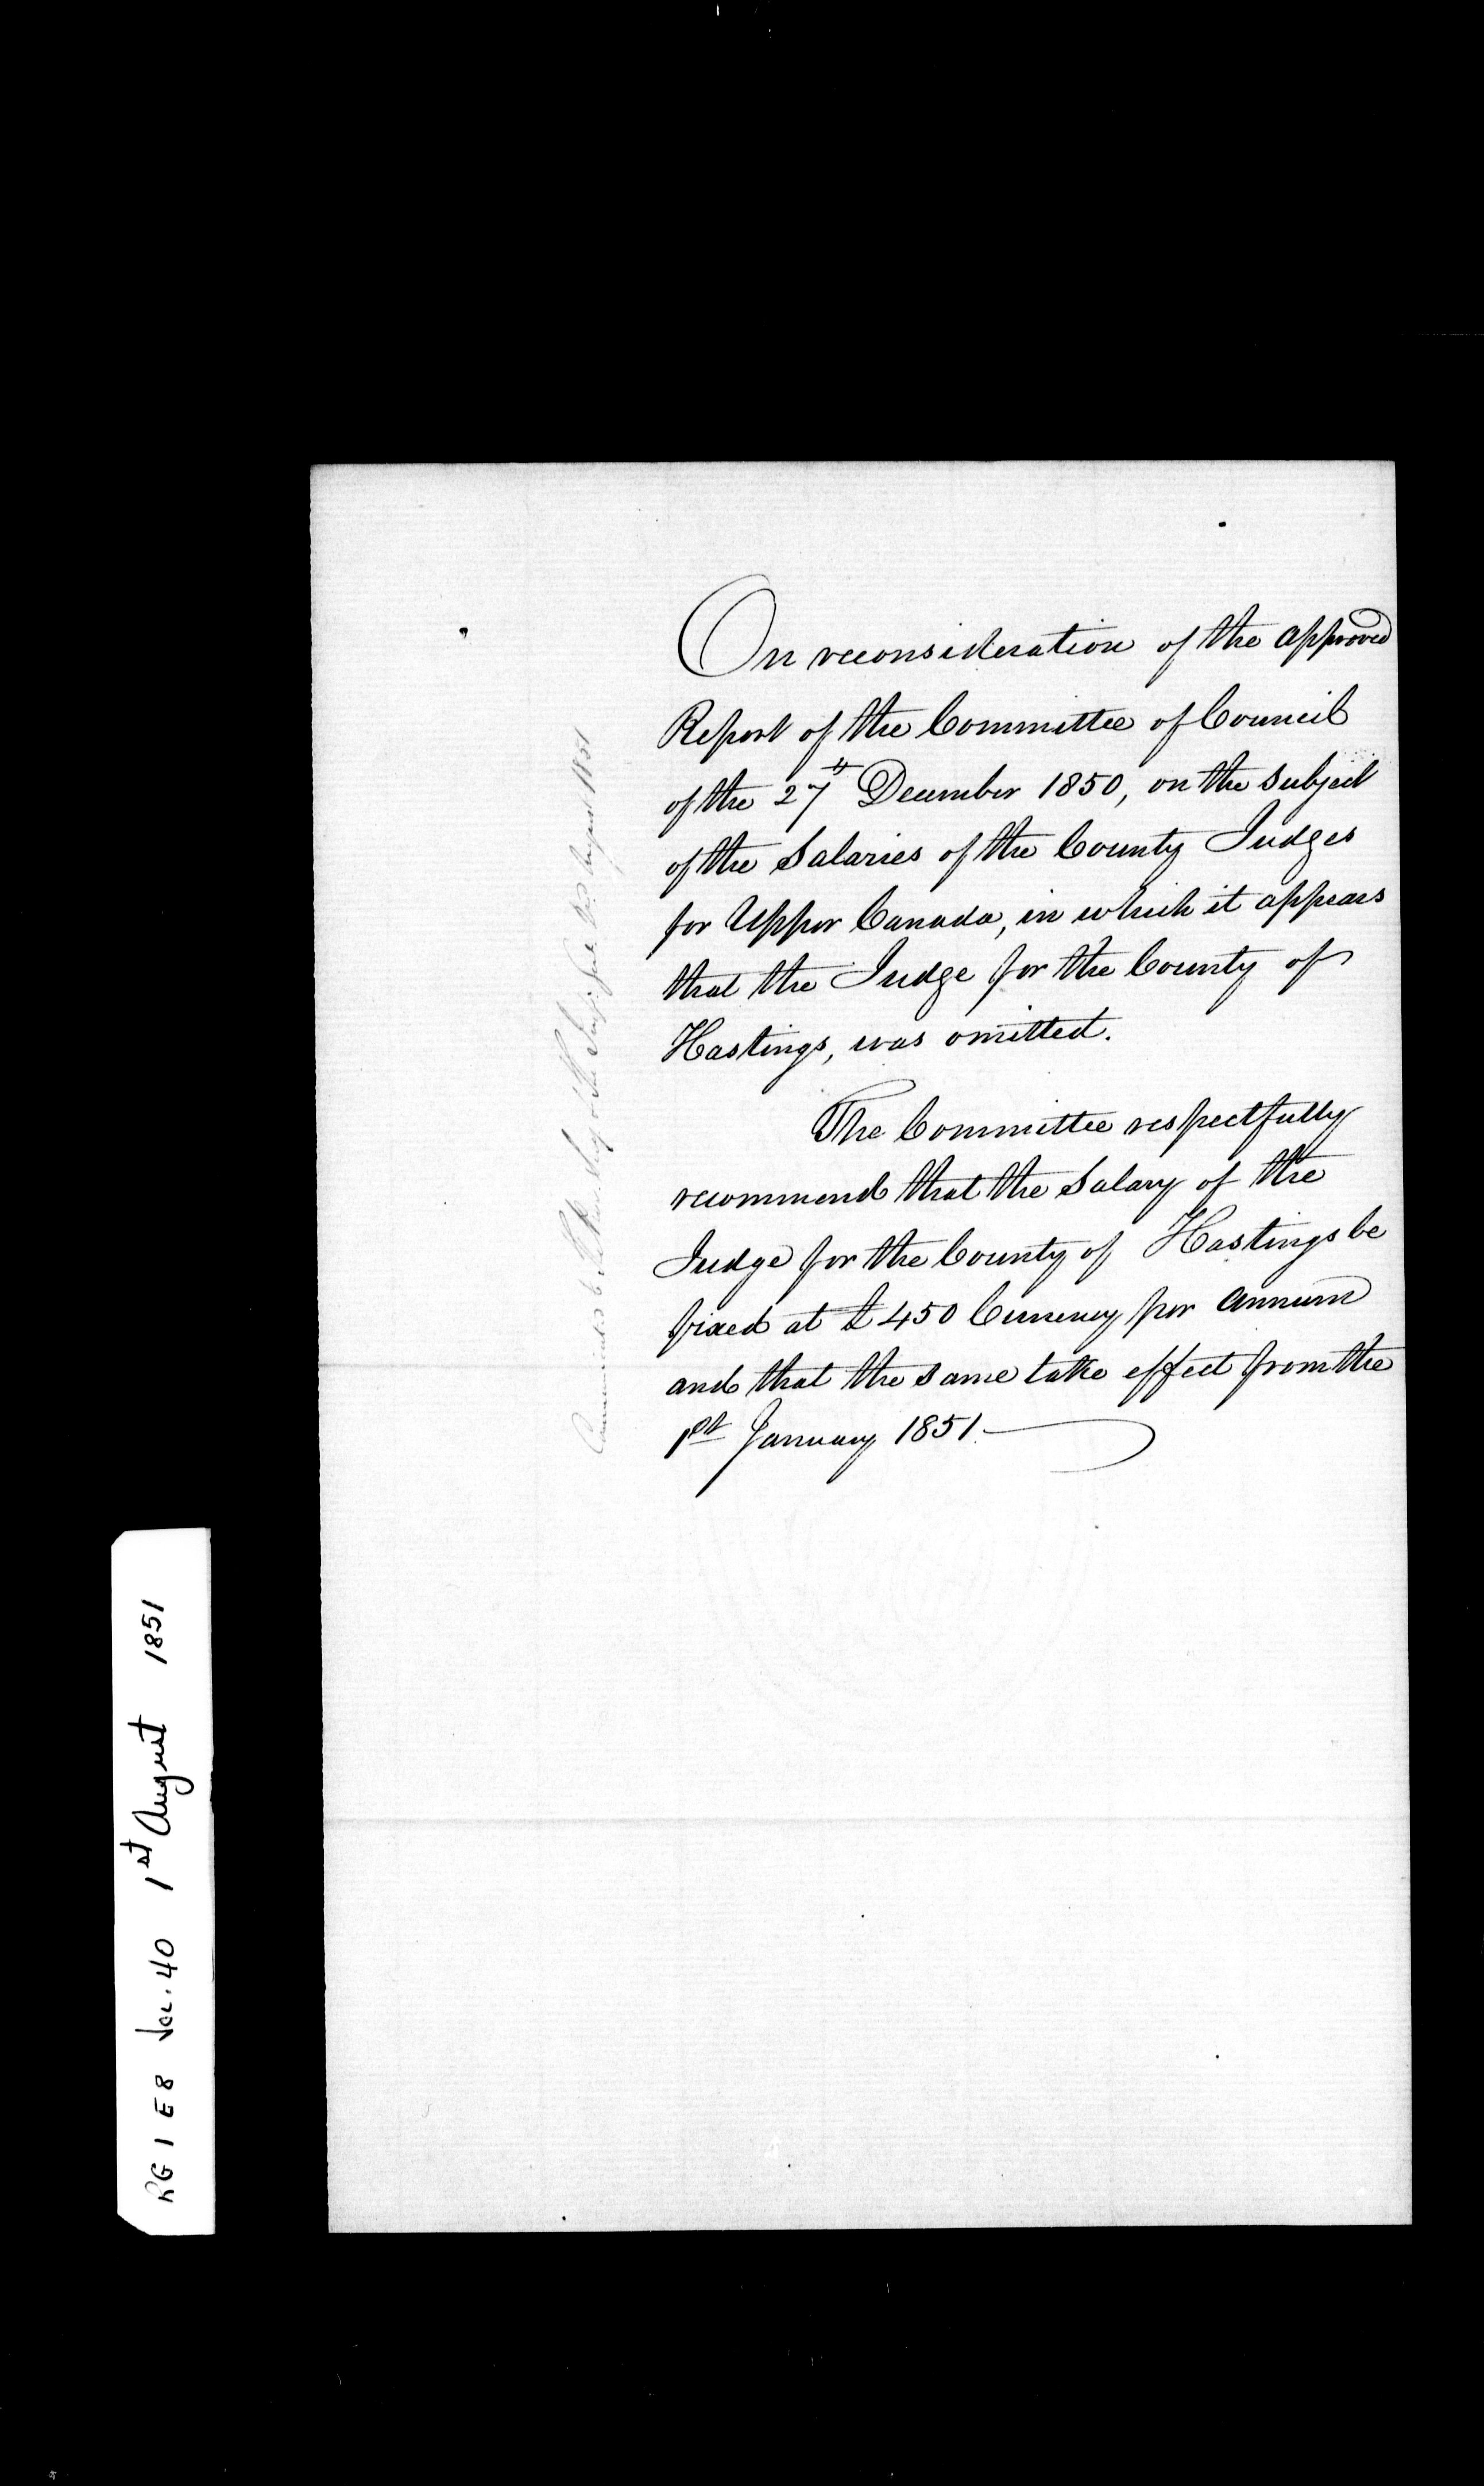 On reconsideration of the approved
Report of the Committee of Council
of the 27th December 1850, on the subject
of the Salaries of the County Judges
for Upper Canada, in which it appears
that the Judge for the County of
Hastings, was omitted.
The Committee respectfully
recommend that the Salary of the
Judge for the County of Hastings be
fixed at £450 Currency per annum
and that the same take effect from the
1st January 1851.
August 1851
RG 1 E8 Vol. 40 1st August 1851